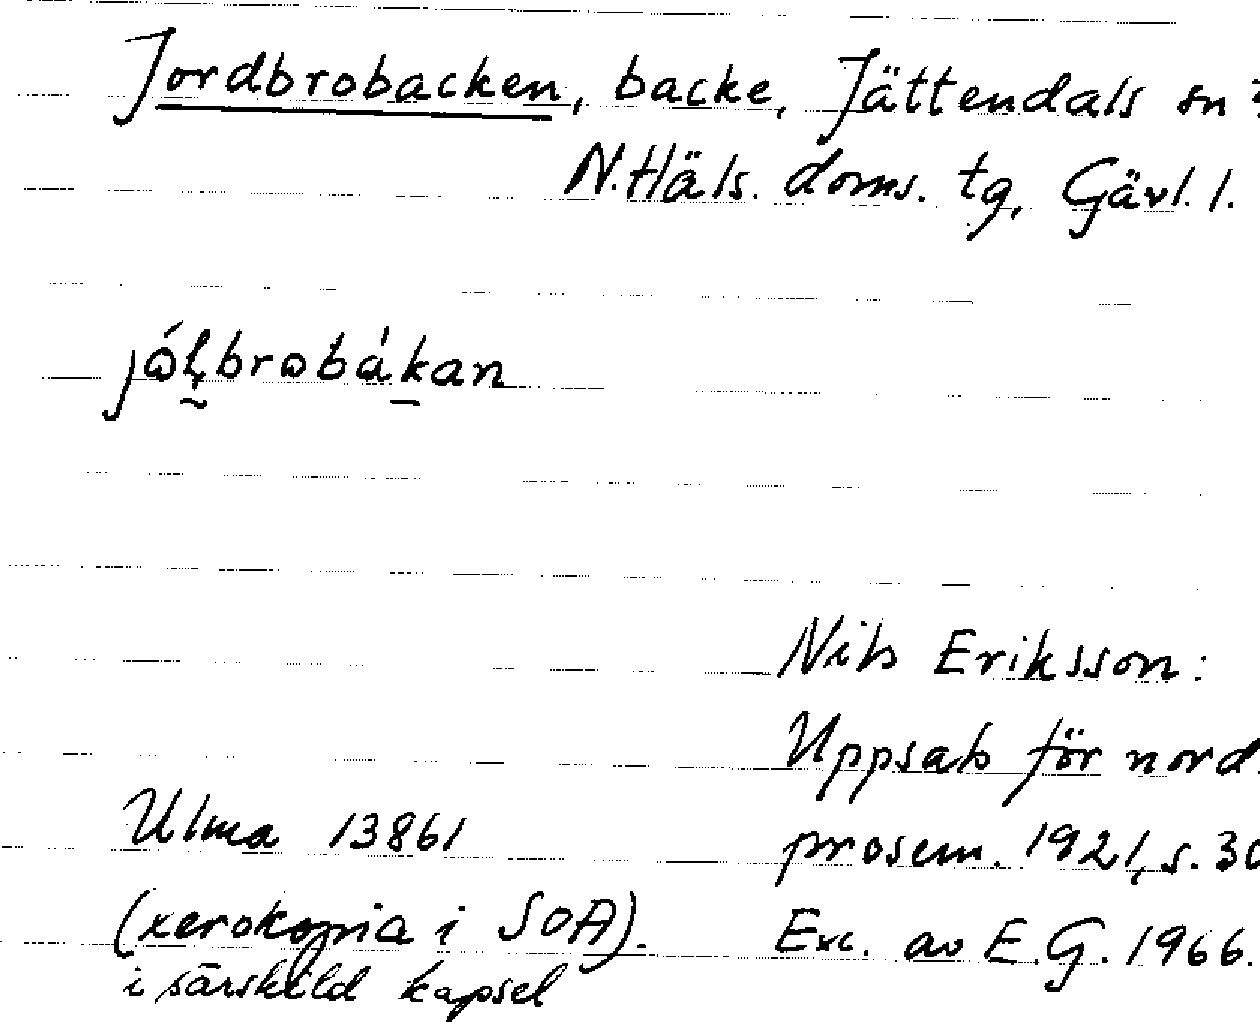 Jordbrobacken, backe, Jättendals sn
N. Häls. doms. tg, Gävl. l.
jól̥brobákan
Nils Eriksson:
Uppsats för nord.
Ulma 13861 prosem. 1921, s. 30
(xerokopia i SOA). Exc. av E.G. 1966.
i särskild kapsel